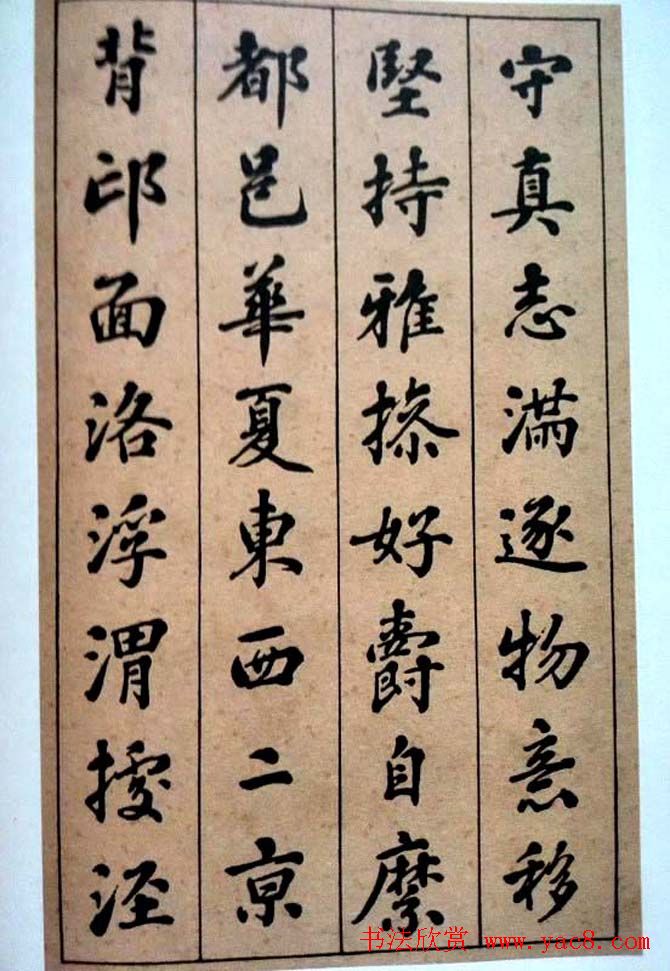 守真志滿逐物意移
堅持雅操好爵自縻
都邑華夏東西二京
背邙面洛浮渭據涇
书法欣赏 www.yac8.com